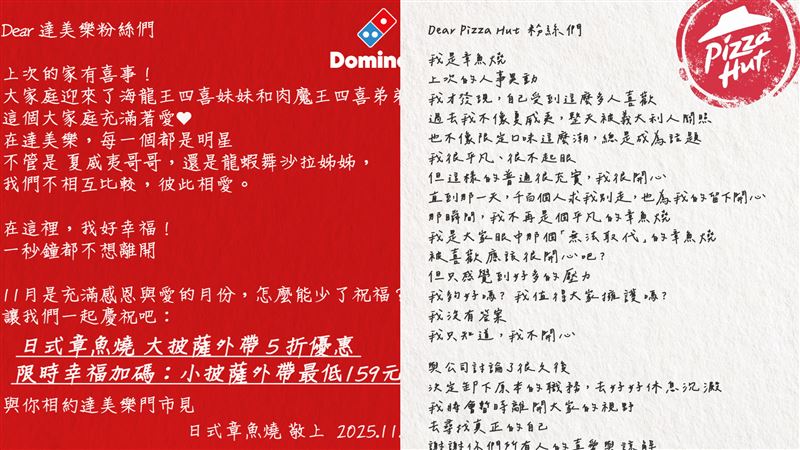 Dear 達美樂粉絲們
Domino
上次的家有喜事！
大家庭迎來了海龍王四喜妹妹和肉魔王四喜弟弟
這個大家庭充滿著愛♥
在達美樂，每一個都是明星
不管是 夏威夷哥哥，還是龍蝦舞沙拉姊姊，
我們不相互比較，彼此相愛。
在這裡，我好幸福！
一秒鐘都不想離開
11月是充滿感恩與愛的月份，怎麼能少了祝福？
讓我們一起慶祝吧：
日式章魚燒 大披薩外帶 5 折優惠
限時幸福加碼：小披薩外帶最低159元
與你相約達美樂門市見
日式章魚燒 敬上 2025.11.
Dear Pizza Hut 粉絲們
Pizza Hut
我是章魚燒
上次的人事異動
我才發現，自己受到這麼多人喜歡
過去我不像夏威夷，整天被義大利人關照
也不像限定口味這麼潮，總是成為話題
我很平凡、很不起眼
但這樣的普通很充實，我很開心
直到那一天，千百個人求我別走，也為我的留下開心
那瞬間，我不再是個平凡的章魚燒
我是大家眼中那個「無法取代」的章魚燒
被喜歡應該很開心吧？
但只感覺到好多的壓力
我夠好嗎？我值得大家擁護嗎？
我沒有答案
我只知道，我不開心
與公司討論了很久後
決定卸下原本的職務，去好好休息沉澱
我將會暫時離開大家的視野
去尋找真正的自己
謝謝你們所有人的喜愛與諒解